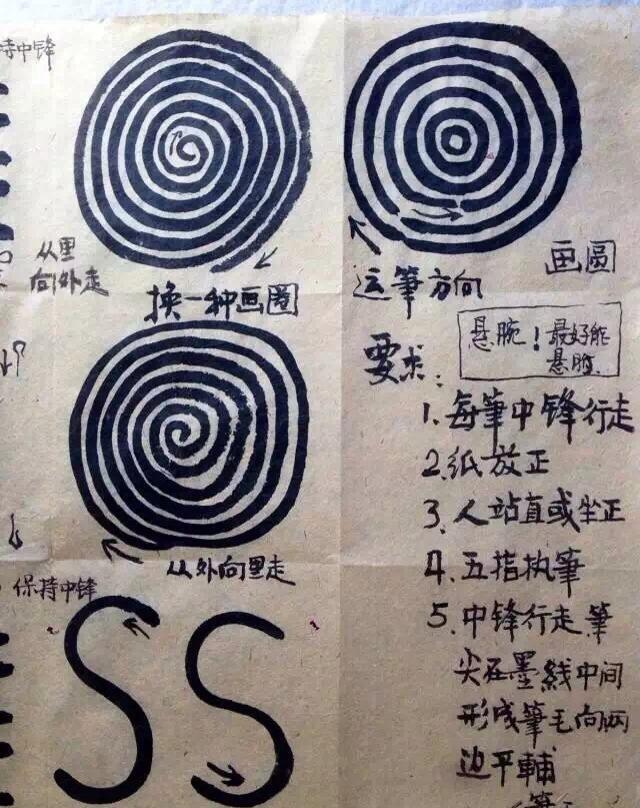 持中锋
从里
向外走
换一种画圈
运筆方向
画圆
要求：
悬腕！最好能
悬肘
1、每筆中锋行走
2、纸放正
3、人站直或坐正
4、五指执筆
5、中锋行走，筆
尖在墨线中间
形成筆毛向两
边平輔
从外向里走
保持中锋
SS